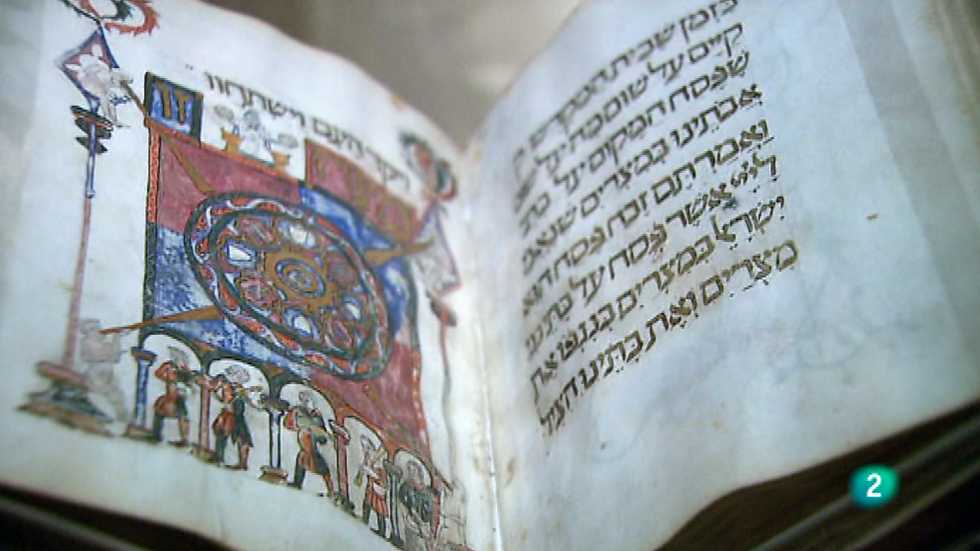 בזמן שבית המקדש ק
קיים על שום מה על
שפסח המקום על בתי
אבותינו במצרים שנאמ
ואמרתם זבח פסח הוא
ליי אשר פסח על בתי בני
ישראל במצרים בנגפו את
מצרים ואת בתינו הציל
ויקד העם וישתחוו
זו
2